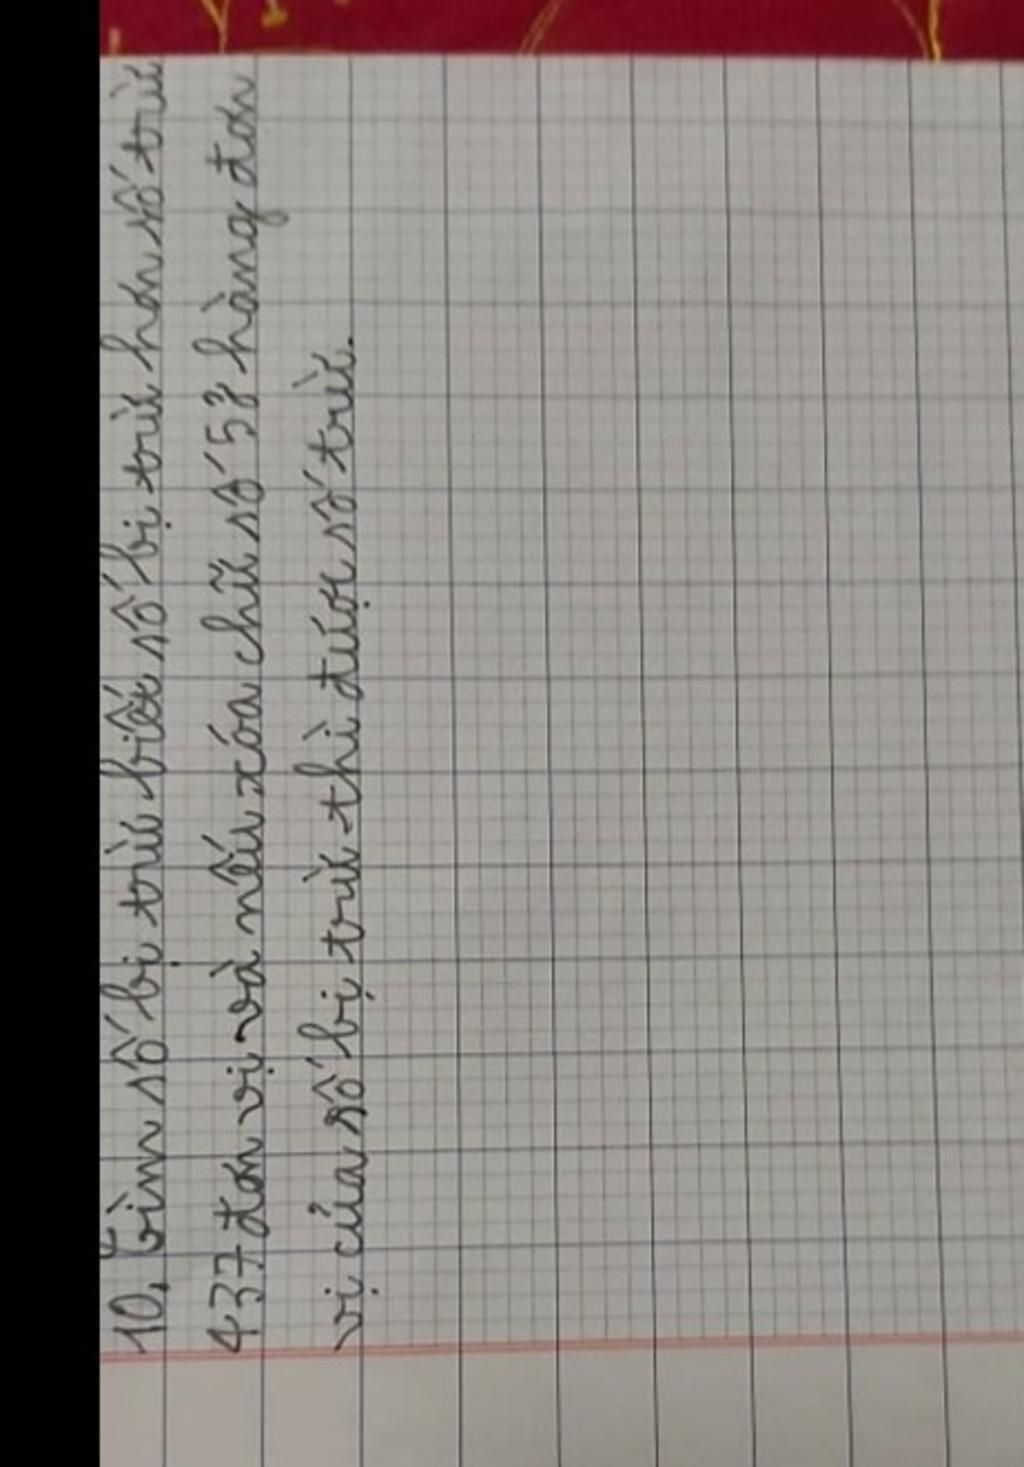 10, Tìm số bị trừ biết số bị trừ hơn số trừ
437 đơn vị và nếu xóa chữ số 5 ở hàng đơn
vị của số bị trừ thì được số trừ.